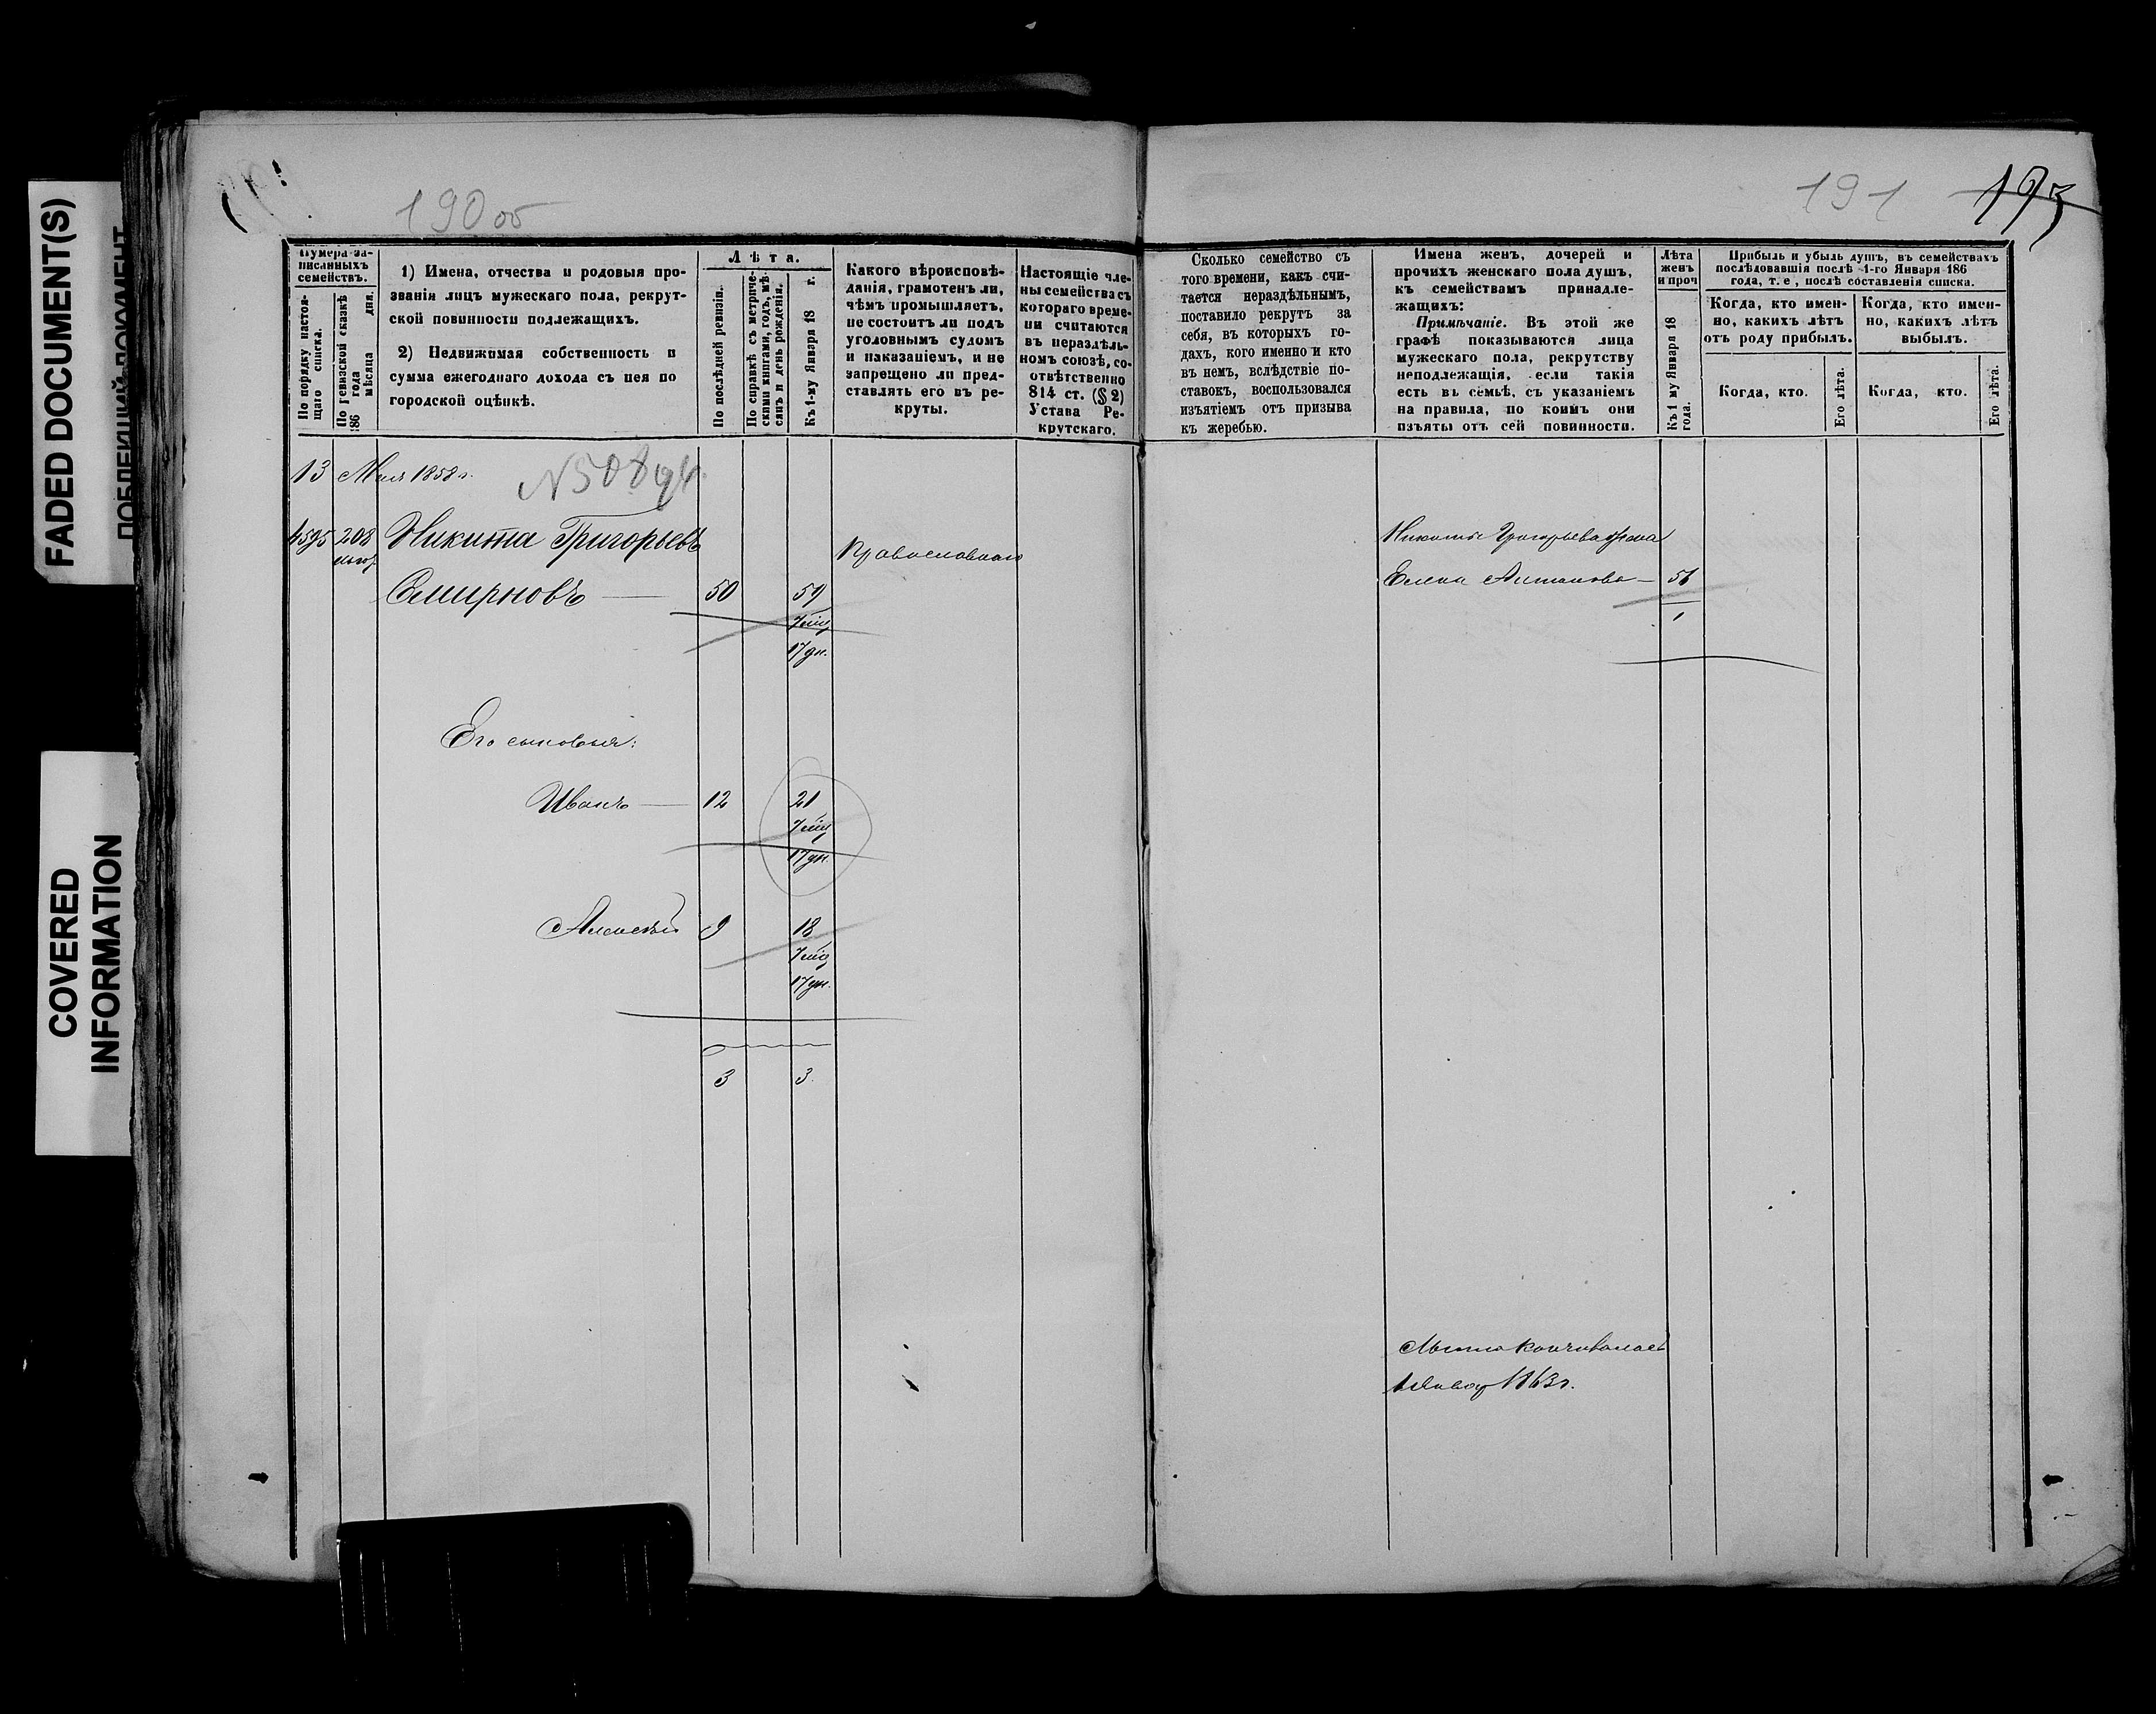 FADED DOCUMENT(S)
COVERED
INFORMATION
190 об
191
193
Нумера за-
писанныхъ
семействъ.
По порядку настоя-
щаго списка.
По ревизской сказкѣ
186 года
мѣсяца дня.
1) Имена, отчества и родовыя про-
званія лицъ мужескаго пола, рекрут-
ской повинности подлежащихъ.
2) Недвижимая собственность и
сумма ежегоднаго дохода съ нея по
городской оцѣнкѣ.
Лѣта.
По послѣдней ревизіи.
По справкѣ съ метриче-
скими книгами, годъ, мѣ-
сяцъ и день рожденія.
Къ 1-му Января 18 г.
Какого вѣроисповѣ-
данія, грамотенъ ли,
чѣмъ промышляетъ,
не состоитъ ли подъ
уголовнымъ судомъ
и наказаніемъ, и не
запрещено ли пред-
ставлять его въ ре-
круты.
Настоящіе чле-
ны семейства съ
котораго време-
ни считаются
въ нераздѣль-
номъ союзѣ, со-
отвѣтственно
814 ст. (§ 2)
Устава Ре-
крутскаго.
Сколько семейство съ
того времени, какъ счи-
тается нераздѣльнымъ,
поставило рекрутъ за
себя, въ которыхъ го-
дахъ, кого именно и кто
въ немъ, вслѣдствіе по-
ставокъ, воспользовался
изъятіемъ отъ призыва
къ жеребью.
Имена женъ, дочерей и
прочихъ женскаго пола душъ,
къ семействамъ принадле-
жащихъ:
Примѣчаніе. Въ этой же
графѣ показываются лица
мужескаго пола, рекрутству
неподлежащія, если такія
есть въ семьѣ, съ указаніемъ
на правила, по коимъ они
изъяты отъ сей повинности.
Лѣта
женъ
и проч
Къ 1 му Января 18
года.
Прибыль и убыль душъ, въ семействахъ
послѣдовавшія послѣ 1-го Января 186
года, т. е., послѣ составленія списка.
Когда, кто имен-
но, какихъ лѣтъ
отъ роду прибылъ.
Когда, кто имен-
но, какихъ лѣтъ
выбылъ.
Когда, кто.
Его лѣта.
Когда, кто.
Его лѣта.
13 Мая 1858 г.
N 508
4595 208 Никита Григорьевъ
Православнаго
Смирновъ — 50 59
7 мѣц
17 дн.
Никиты Григорьева жена
Елена Антонова — 51
1
Его сыновья:
Иванъ — 12 21
7 мѣц
17 дн.
Алексѣй 9 18
7 мѣц
17 дн.
3 3.
1863 г.